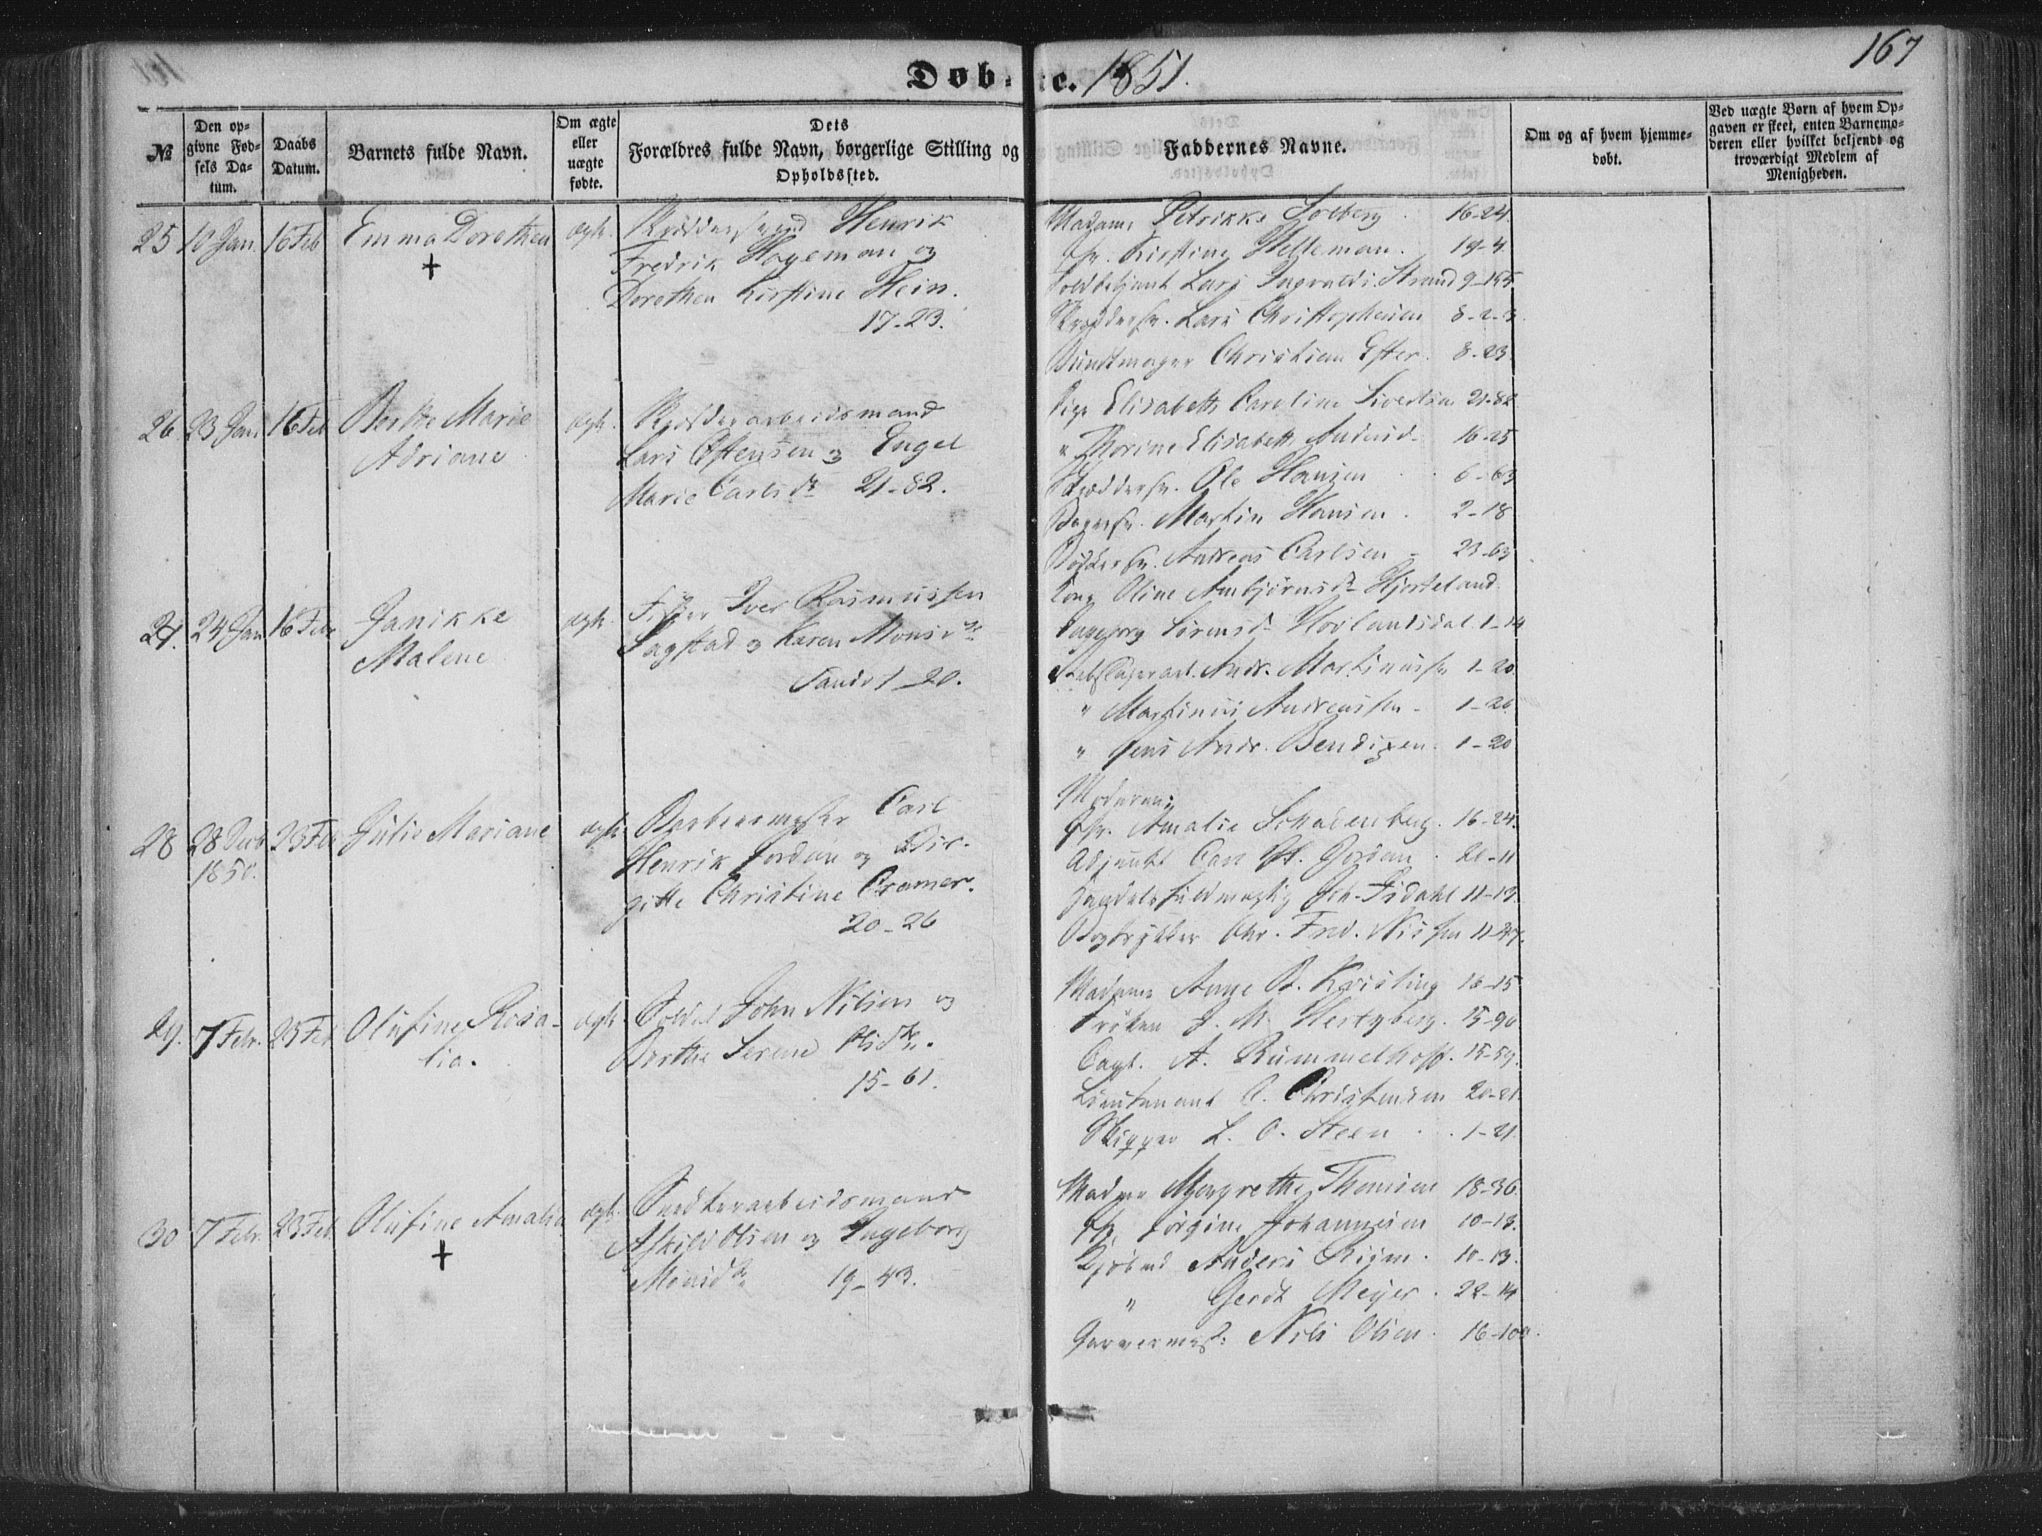 167
Døbte. 1851.
№
Den op-
givne Fød-
sels Da-
tum.
Daabs
Datum.
Barnets fulde Navn.
Om ægte
eller
uægte
fødte.
Dets
Forældres fulde Navn, borgerlige Stilling og
Opholdssted.
Faddernes Navne.
Om og af hvem hjemme-
døbt.
Ved uægte Børn af hvem Op-
gaven er skeet, enten Barnemo-
deren eller hvilket bekjendt og
troværdigt Medlem af
Menigheden.
25 10 Jan. 16 Feb Emma Dorothea ægte. Henrik
Fredrik Hageman og
Dorothea Kirstine Hein.
17-23.
Madame Petrikke Solberg. 16-24
Kirstine Helleman. 19-4
Toldbetjent Lars Strand 9-155
Lars Christophersen 8-2-3
Buntmager Christian Ester. 8-23
26 23 Jan. 16 Feb Berthe Marie
Adriane
ægte.
Lars Ostensen og Engel
Marie Carlsdr 21-82.
Pige Elisabeth Caroline Sivertsen 21-82
" Thorine Elisabeth Andersd. 16-25
Ole Hansen 6-63
Martin Hansen. 2-18
Andreas Carlsen - 23-63
27. 24 Jan 16 Febr Janikke
Malene
ægte. Fisker Iver Rasmussen
Sagstad og Karen Monsdr
Sandv 1-20.
Kone Oline Ambjørnsdr Hjorteland.
Ingeborg Sørensd. Hovlandsdal. 1-14
Andr. Martinussen 1-20
" Martinus Andreassen - 1-20
" Jens Andr. Bendixen. 1-20
28 28 Decb
1850.
23 Feb Julie Mariane ægte. Carl
Henrik Jordan og Bir-
gitte Christine Cramer.
20-26
Moderen;
Amalie Schadenberg. 16-24.
Adjunkt Carl H. Jordan. 20-11
Handelsfuldmægtig Joh. Isdahl 11-13.
Bogtrykker Chr. Fred. Nissen 11-27.
29. 7 Febr. 23 Feb Olufine Rosa-
lia.
ægte. Soldat John Nilsen og
Berthe Serene Olsdtr.
15-61.
Madame Anne B. Kyisling 16-15
Frøken J. M. Hertzberg. 15-90
Capt. A. Rummelhoff. 15-59.
Lieutenant C. Christensen 20-21
Skipper L. O. Steen . . 1-21
30 7 Febr. 23 Feb. Olufine Amalia ægte. Snedkerarbeidsmand
Askild Olsen og Ingeborg
Monsdtr 19-43.
Madame Margrethe Thomsen 18-36.
Jørgine Johannesen 10-13.
Kjøbmd Anders 10-13.
" Gerdt Meyer. 22-14
Garvermest: Nils Olsen. 16-100.